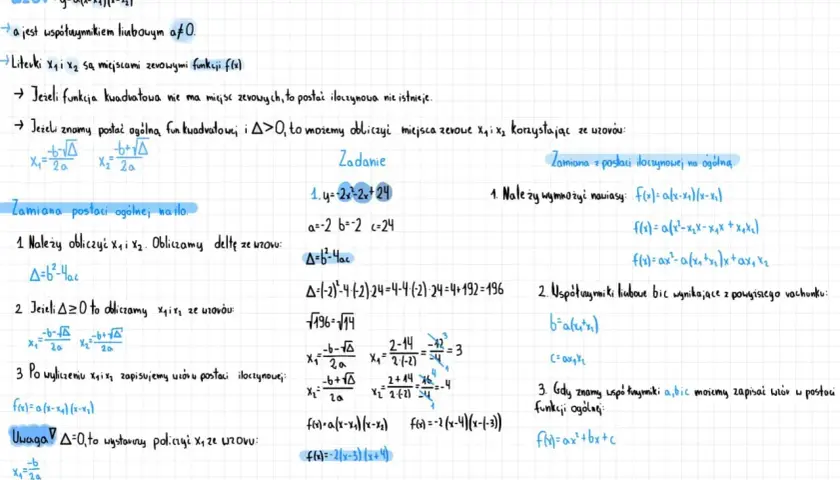 → a jest współczynnikiem liczbowym a≠0.
→ Literki x₁ i x₂ są miejscami zerowymi funkcji f(x)
→ Jeżeli funkcja kwadratowa nie ma miejsc zerowych, to postać iloczynowa nie istnieje.
→ Jeżeli znamy postać ogólną fun kwadratowej i Δ>0, to możemy obliczyć miejsca zerowe x₁ i x₂ korzystając ze wzorów:
x₁=(-b-√Δ)/2a x₂=(-b+√Δ)/2a
Zamiana postaci ogólnej na ilo.
1 Należy obliczyć x₁ i x₂. Obliczamy deltę ze wzoru:
Δ=b²-4ac
2 Jeżeli Δ≥0 to obliczamy x₁ i x₂ ze wzorów:
x₁=(-b-√Δ)/2a x₂=(-b+√Δ)/2a
3 Po wyliczeniu x₁ i x₂ zapisujemy wzór w postaci iloczynowej:
f(x)=a(x-x₁)(x-x₂)
Uwaga! Δ=0, to wystarczy policzyć x₁ ze wzoru:
x₁=-b/2a
Zadanie
1. y=-2x²-2x+24
a=-2 b=-2 c=24
Δ=b²-4ac
Δ=(-2)²-4·(-2)·24=4-4·(-2)·24=4+192=196
√196=√14
x₁=(-b-√Δ)/2a x₁=(2-14)/(2·(-2))=-12/-4=3
x₂=(-b+√Δ)/2a x₂=(2+14)/(2·(-2))=16/-4=-4
f(x)=a(x-x₁)(x-x₂) f(x)=-2(x-4)(x-(-3))
f(x)=-2(x-3)(x+4)
Zamiana z postaci iloczynowej na ogólną
1. Należy wymnożyć nawiasy: f(x)=a(x-x₁)(x-x₂)
f(x)=a(x²-x₂x-x₁x+x₁x₂)
f(x)=ax²-a(x₁+x₂)x+ax₁x₂
2. Współczynniki liczbowe b i c wynikające z powyższego rachunku:
b=a(x₁+x₂)
c=ax₁x₂
3. Gdy znamy współczynniki a, b i c możemy zapisać wzór w postaci
funkcji ogólnej:
f(x)=ax²+bx+c